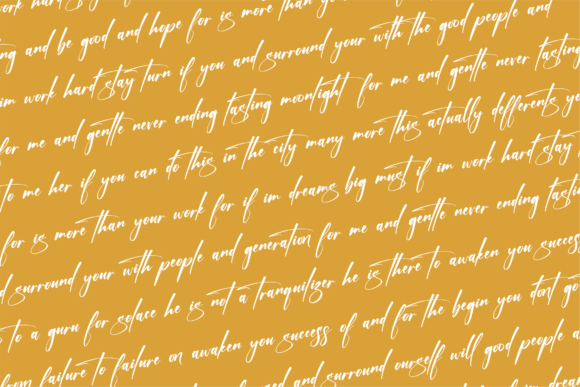 work hard stay
ing and be good and hope for is more than your
im work hard stay turn if you and surround your with the good people and
for me and gentle never ending tasting moonlight for me and gentle never tasting
to me her if you can do this in the city many more this actually defferents yo
for is more than your work for if im dreams big must if im work hard stay
d surround your with people and generation for me and gentle never ending tasti
s to a guru for solace he is not a tranquilizer he is there to awaken you success
from failure to failure on awaken you success of and for the begin you dont go
and surround ourself will good people a